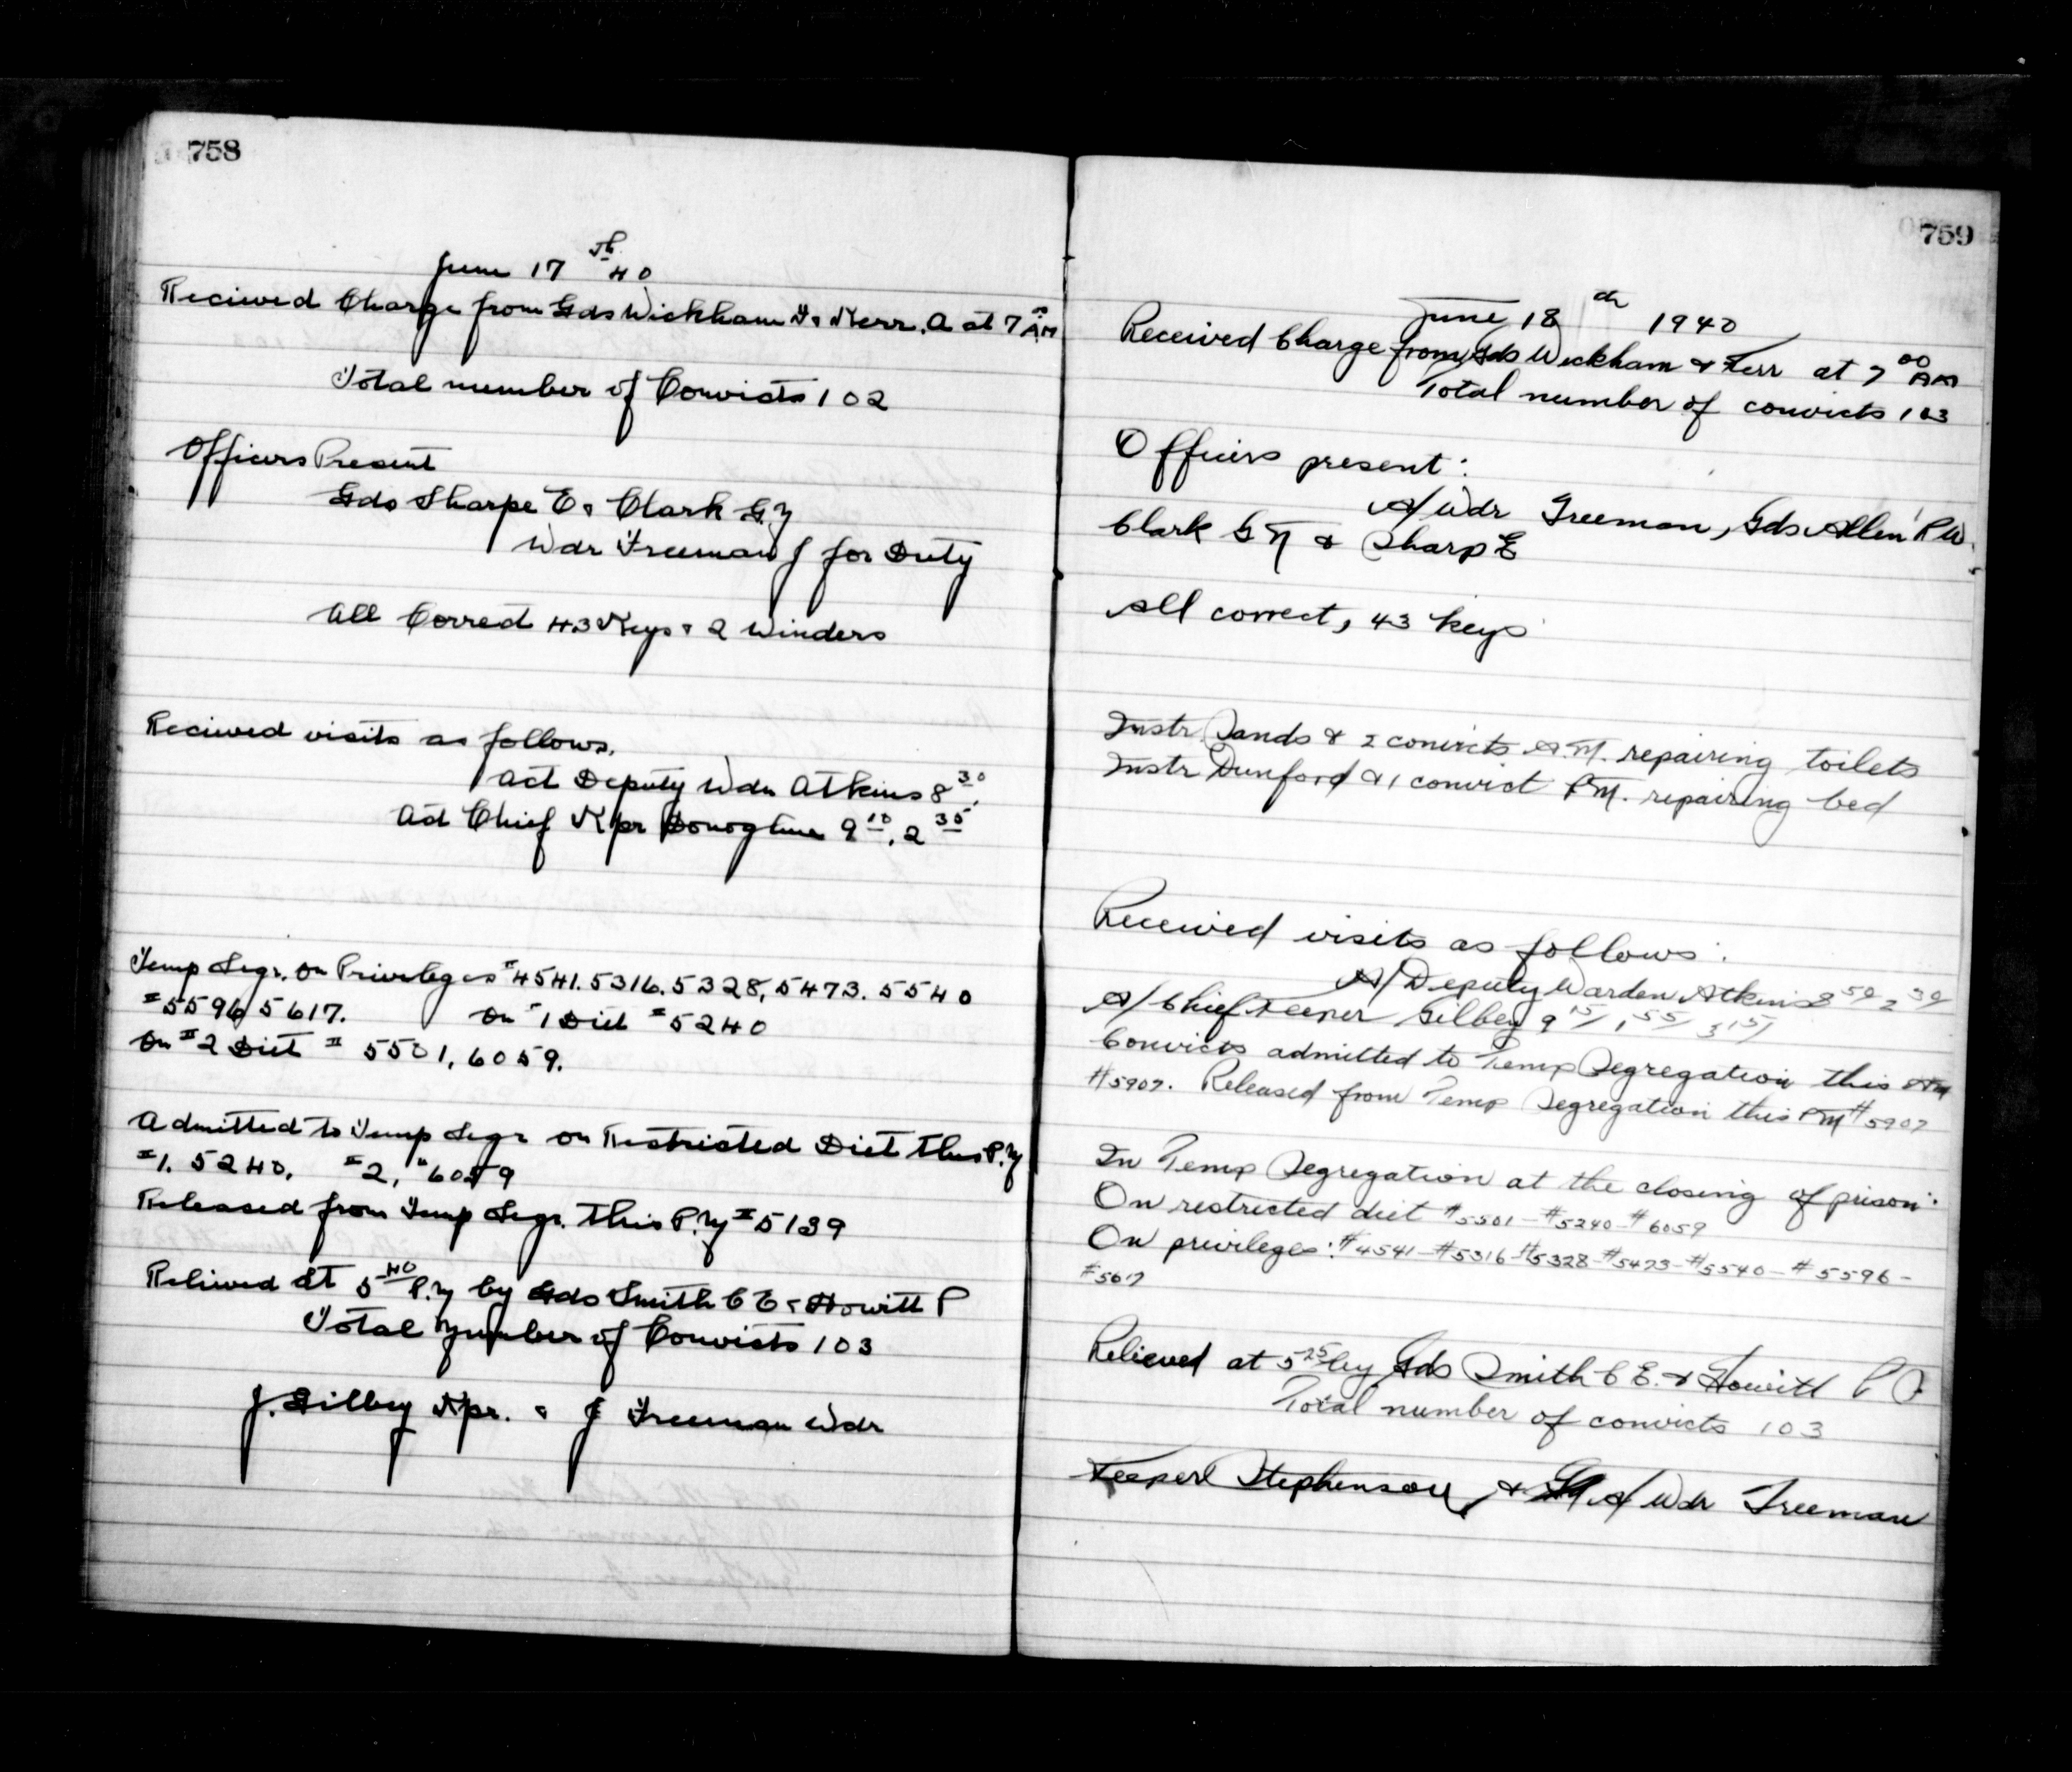 758
June 17th 40
Recieved Charge from Gds Wickham & Kerr. A at 7 AM
Total number of Convicts 102
Officers Present
Gds Sharpe E & Clark G.M
Wdr Freeman J for Duty
All Corred 43 Keys & 2 Winders
Recieved visits as follows.
Act Deputy Wdn Atkins 8 30.
Act Chief Kpr Donoghue 9 10, 2 35
Temp Segr. on Privileges #4541. 5316. 5328, 5473. 5540
#5596 5617. On #1 Diet #5240
On #2 Diet # 5501, 6059.
Admitted to Temp Segr on Restricted Diet this P.M
#1. 5240. #2, "6059
Released from Temp Segr. this P.M #5139
Relieved At 5 40 P.M by Gds Smith C E & Howitt P
Total Number of Convicts 103
J. Gilbey Kpr. & J Freeman Wdr
759
June 18th 1940
Received Charge from Gds Wickham & Kerr at 7 00 AM
Total number of convicts 103
Officers present:
A/Wdr Freeman, Gds Allen R W.
Clark G M & Sharp E
All correct, 43 keys
Instr. Sands & 2 convicts A.M. repairing toilets
Instr Dunford & 1 convict P.M. repairing bed
Received visits as follows:
A/Deputy Warden Atkins 8 50 2 30
A/Chief Keeper Gilbey 9 15/ 1 55/ 3 15/
Convicts admitted to Temp Segregation this AM
#5907. Released from Temp Segregation this PM #5907
In Temp Segregation at the closing of prison:
On restricted diet #5501-#5240-#6059
On privileges: #4541-#5316-#5328-#5473-#5540-#5596-
#5617
Relieved at 5 25 by Gds Smith C E. & Howitt P
Total number of convicts 103
Keeper Stephenson, & A/Wdr Freeman